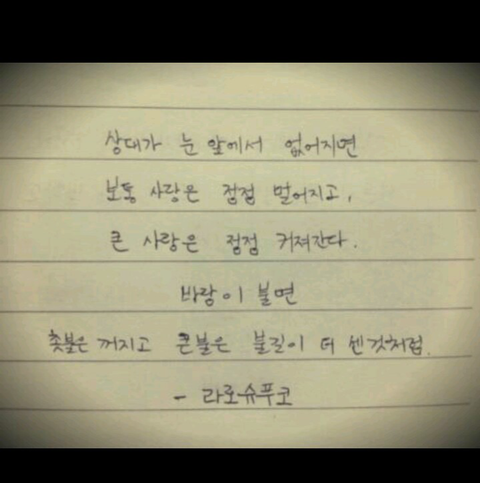 상대가 눈 앞에서 없어지면
보통 사랑은 점점 멀어지고,
큰 사랑은 점점 커져간다.
바람이 불면
촛불은 꺼지고 큰불은 불길이 더 센것처럼.
- 라로슈푸코